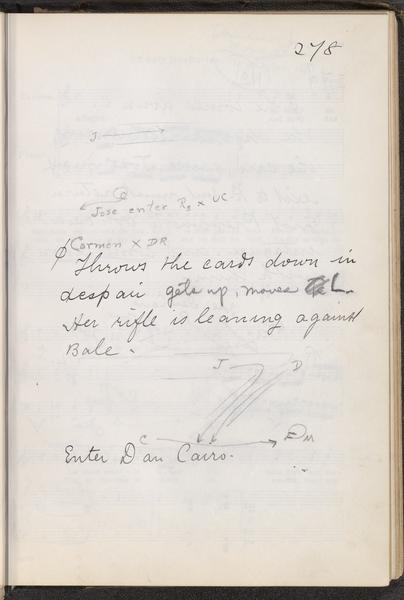 278
J
Jose enter R2 x UC
Carmen X DR
Throws the cards down in
despair gets up, moves L.
Her rifle is leaning against
Bale.
J D
C
Enter Dan Cairo.